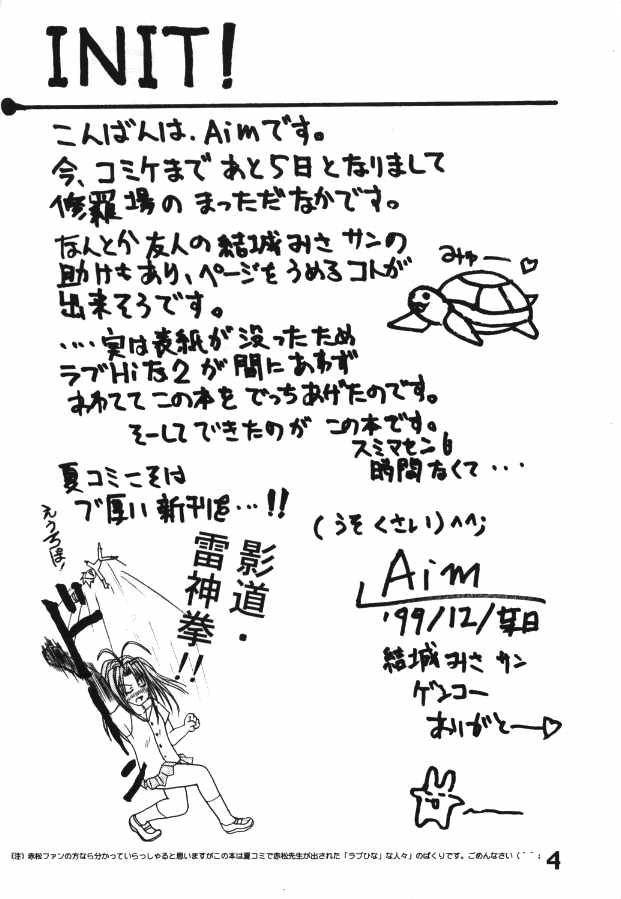 INIT!
こんばんは.Aimです。
今、コミケまであと5日となりまして
修羅場のまっただなかです。
なんとか友人の結城みさサンの
助けもあり、ページをうめるコトが
出来そうです。
‥‥実は表紙が没ったため
ラブHiな2が間にあわず
あわててこの本をでっちあげたのです。
そーしてできたのがこの本です。
スミマセン
時間なくて・・・
みゅー♡
夏コミこそは
ブ厚い新刊を…!!
(うそくさい)^^;
えうちぱ!
影道・
雷神拳!!
ドーン
Aim
'99/12/某日
結城みさサン
ゲンコー
ありがとー♡
(注)赤松ファンの方なら分かっていらっしゃると思いますがこの本は夏コミで赤松先生が出された「ラブひな」な人々」のぱくりです。ごめんなさい(^^;
4